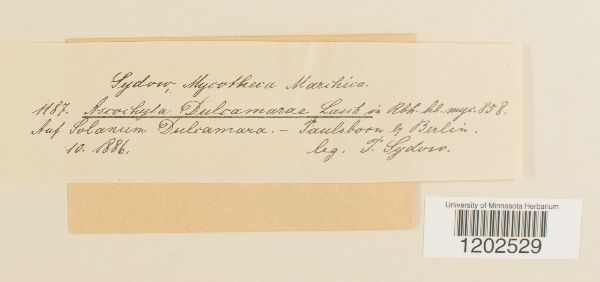 Sydow, Mycotheca Marchica.
1187. Ascochyta Dulcamarae Lasch in Rbh. hb. myc. 858.
Auf Solanum Dulcamara. – Paulsborn b/ Berlin.
10. 1886. leg. P. Sydow.
University of Minnesota Herbarium
1202529